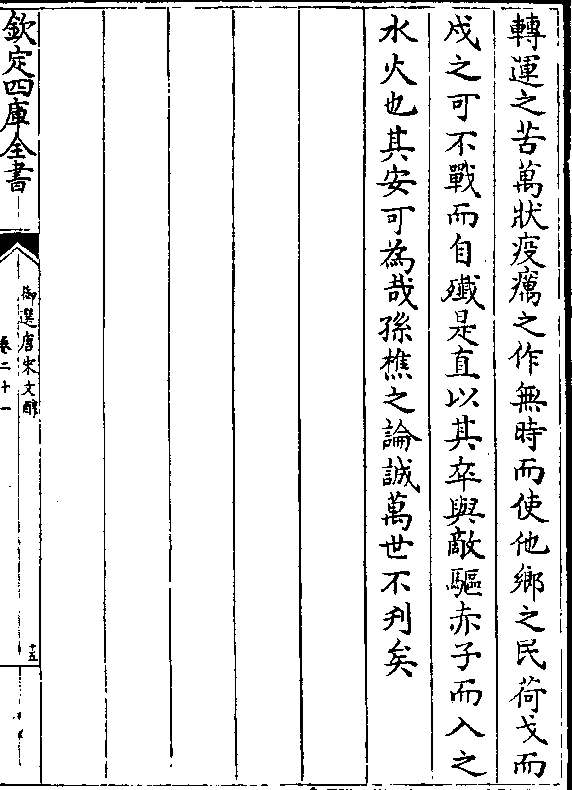 轉運之苦萬狀疫癘之作無時而使他鄉之民荷戈而
戍之可不戰而自殱是直以其卒與敵驅赤子而入之
水火也其安可為哉孫樵之論誠萬世不刋矣
欽定四庫全書
御選唐宋文醇
卷二十一
十五